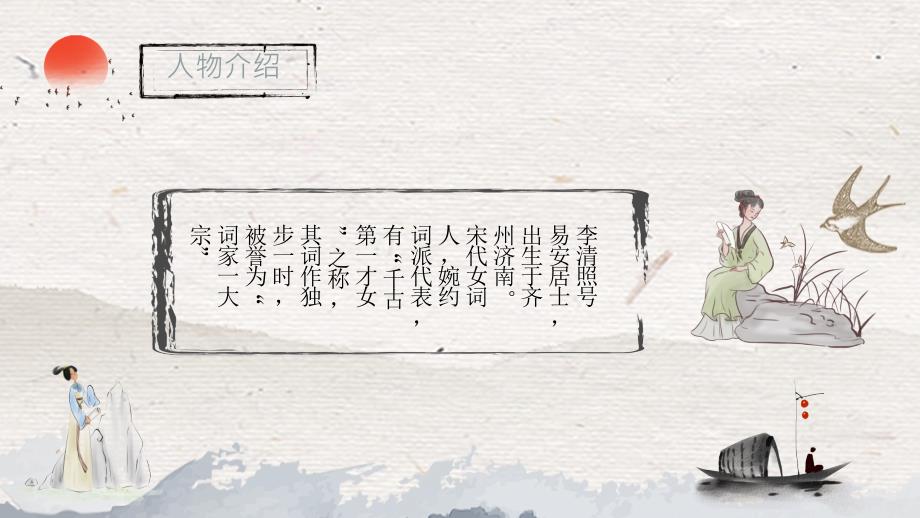 人物介绍
李清照号
易安居士，
出生于齐
州济南。
宋代女词
人，婉约
词派代表，
有“千古
第一才女
”之称，
其词作独
步一时，
被誉为“
词家一大
宗”